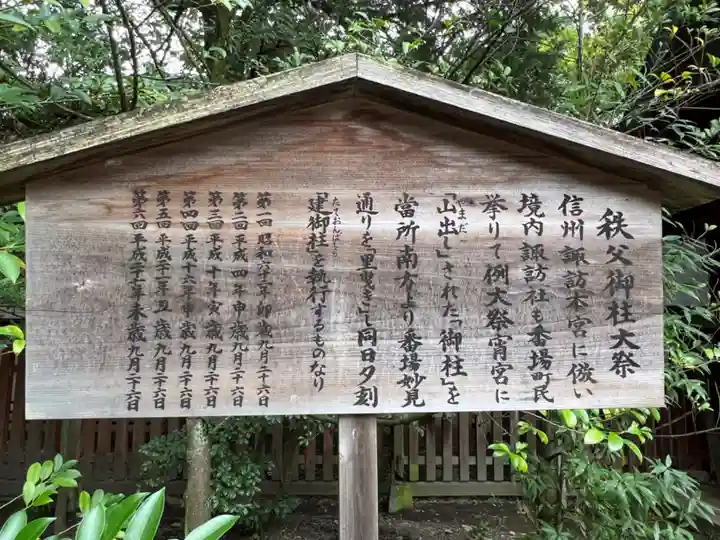 秩父御柱大祭
信州諏訪本宮に倣い
境内諏訪社も番場町民
挙りて例大祭宵宮に
やまだ
「山出し」された「御柱」を
當所南方より番場妙見
通りを「里曳き」し同日夕刻
たておんばしら
「建御柱」を執行するものなり
第一回 昭和六十二年卯歳九月二十六日
第二回 平成四年申歳九月二十六日
第三回 平成十年寅歳九月二十六日
第四回 平成十六年申歳九月二十六日
第五回 平成二十一年丑歳九月二十六日
第六回 平成二十七年未歳九月二十六日